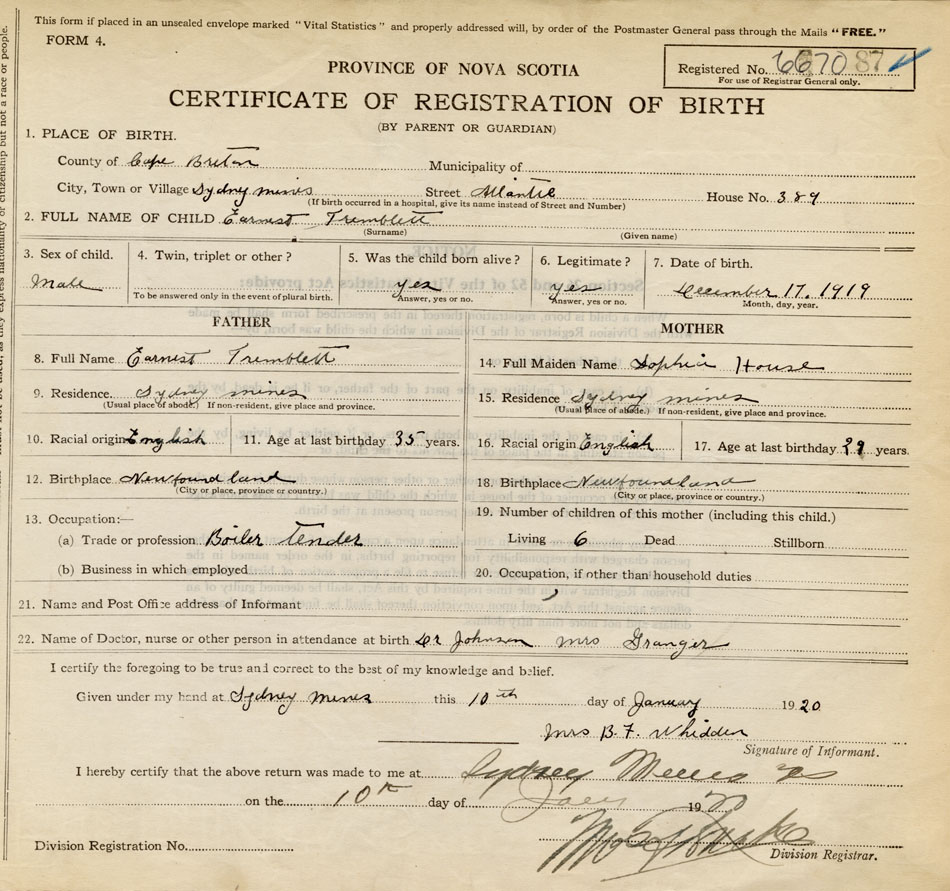 This form if placed in an unsealed envelope marked "Vital Statistics" and properly addressed will, by order of the Postmaster General pass through the Mails "FREE."
FORM 4.
Registered No. 667087
For use of Registrar General only.
PROVINCE OF NOVA SCOTIA
CERTIFICATE OF REGISTRATION OF BIRTH
(BY PARENT OR GUARDIAN)
1. PLACE OF BIRTH.
County of Cape Breton Municipality of
City, Town or Village Sydney mines Street Atlantic House No. 389
(If birth occurred in a hospital, give its name instead of Street and Number)
2. FULL NAME OF CHILD Earnest Tremblett
(Surname) (Given name)
3. Sex of child. 4. Twin, triplet or other? 5. Was the child born alive? 6. Legitimate? 7. Date of birth.
Male yes yes December 17, 1919
To be answered only in the event of plural birth. Answer, yes or no. Answer, yes or no. Month, day, year.
FATHER
8. Full Name Earnest Tremblett
9. Residence. Sydney mines
(Usual place of abode.) If non-resident, give place and province.
10. Racial origin English 11. Age at last birthday 35 years.
12. Birthplace Newfoundland
(City or place, province or country.)
13. Occupation:—
(a) Trade or profession Boiler tender
(b) Business in which employed
MOTHER
14. Full Maiden Name Sophia House
15. Residence Sydney mines
(Usual place of abode.) If non-resident, give place and province.
16. Racial origin English 17. Age at last birthday 39 years.
18. Birthplace Newfoundland
(City or place, province or country.)
19. Number of children of this mother (including this child.)
Living 6 Dead Stillborn
20. Occupation, if other than household duties
21. Name and Post Office address of Informant
22. Name of Doctor, nurse or other person in attendance at birth Dr Johnson Mrs Granger
I certify the foregoing to be true and correct to the best of my knowledge and belief.
Given under my hand at Sydney Mines this 10th day of January 1920
Mrs B. F. Whidden
Signature of Informant.
I hereby certify that the above return was made to me at Sydney Mines NS
on the 10th day of Jany 1920
Division Registration No. Division Registrar.